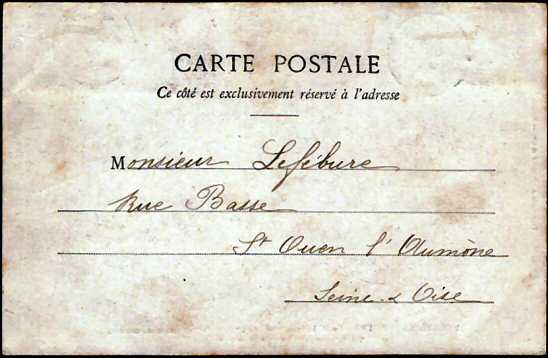 CARTE POSTALE
Ce côté est exclusivement réservé à l'adresse
Monsieur Lefébure
Rue Basse
St Ouen l'Aumône
Seine & Oise